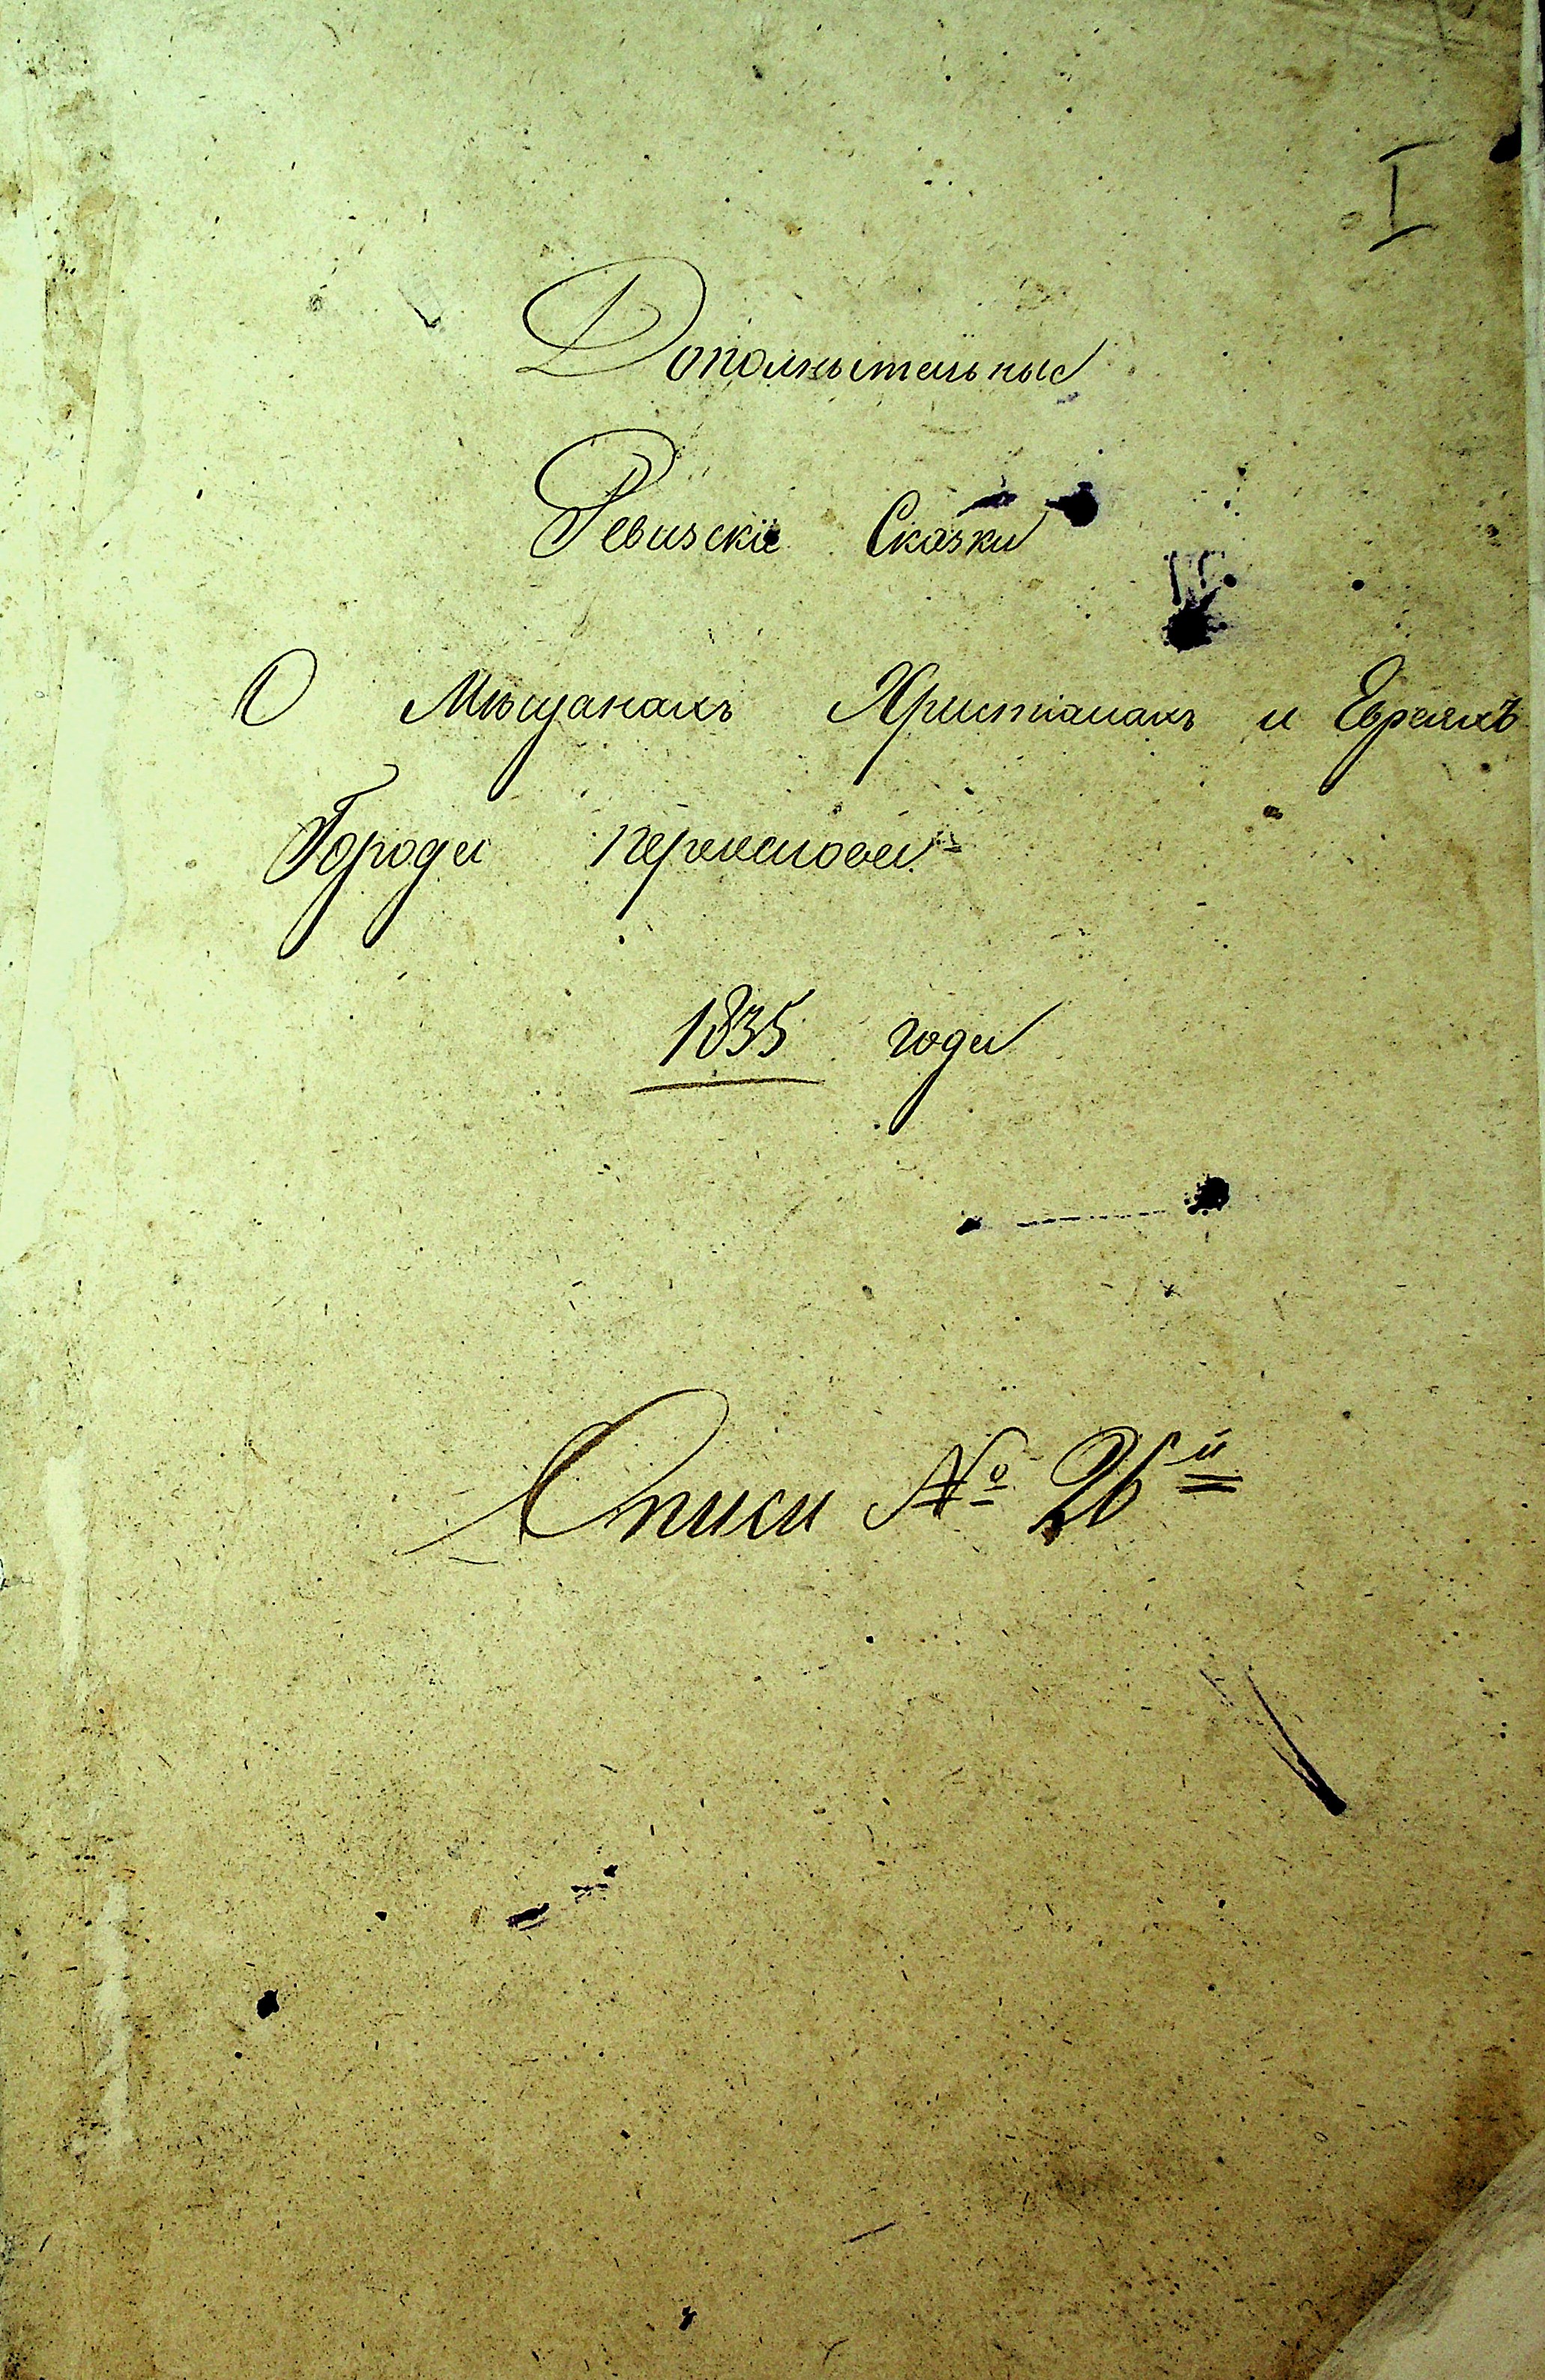 I
Дополнытельные
Ревизскіе Сказки
О Мѣщанахъ Христіанахъ и Евреяхъ
Города Переяслова
1835 года
Описи № 26й